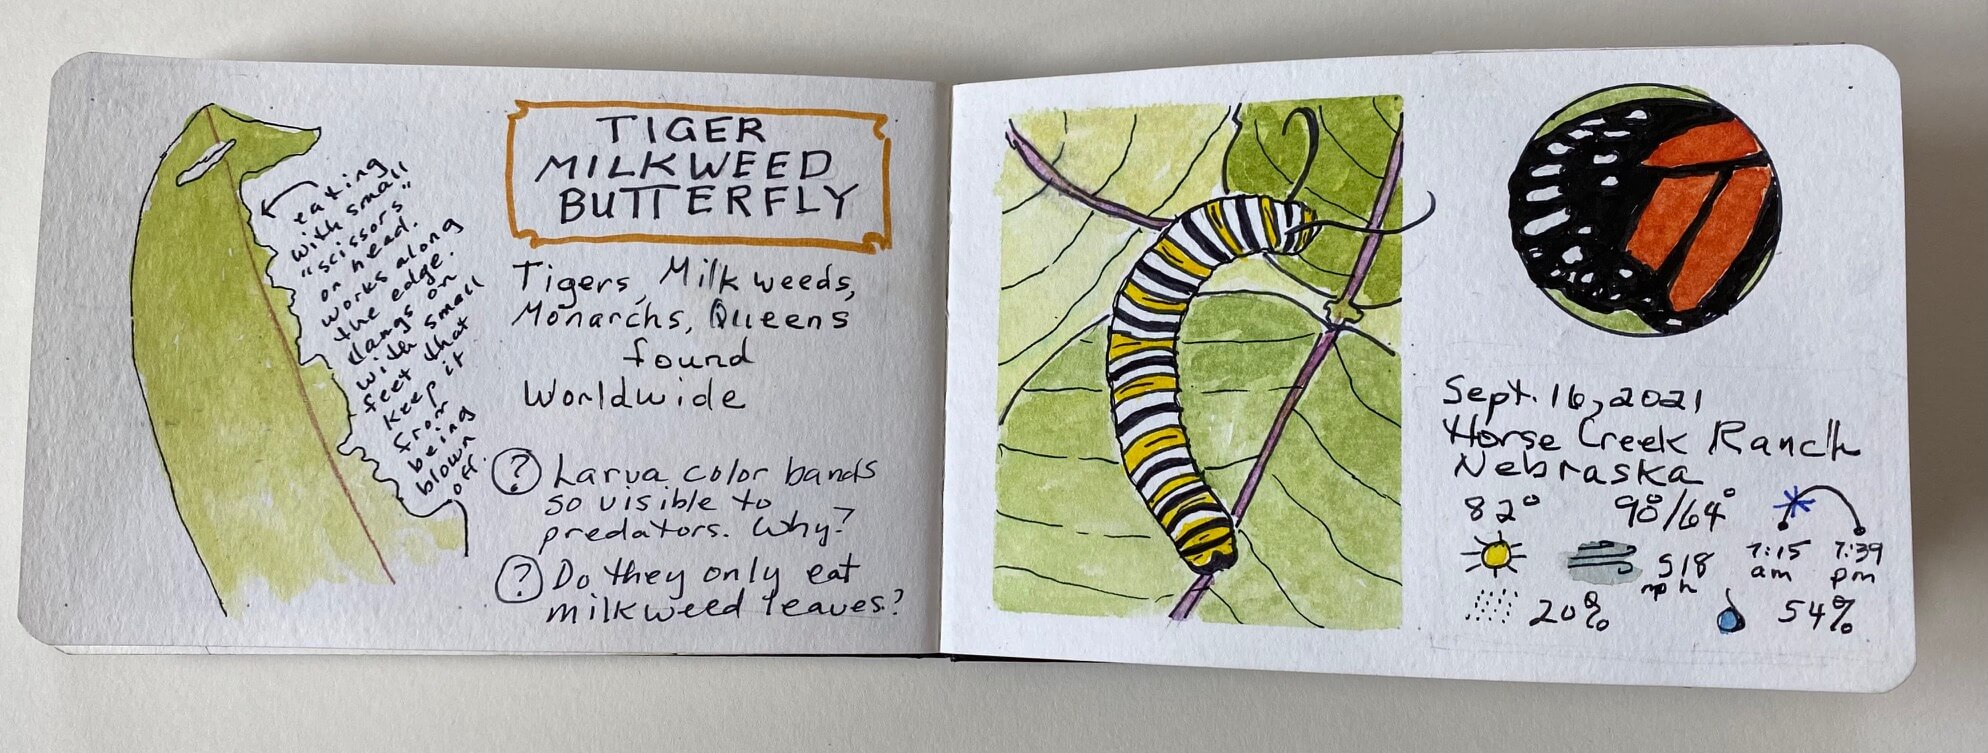 eating
with small
"scissors"
on head.
works along
the edge.
Hangs on
with small
feet that
keep it
from
being
blown
off.
TIGER
MILKWEED
BUTTERFLY
Tigers, Milkweeds,
Monarchs, Queens
found
Worldwide
? Larva color bands
so visible to
predators. Why?
? Do they only eat
milkweed leaves?
Sept. 16, 2021
Horse Creek Ranch
Nebraska
82° 98°/64°
7:15 7:39
am pm
S18
mph
20% 54%